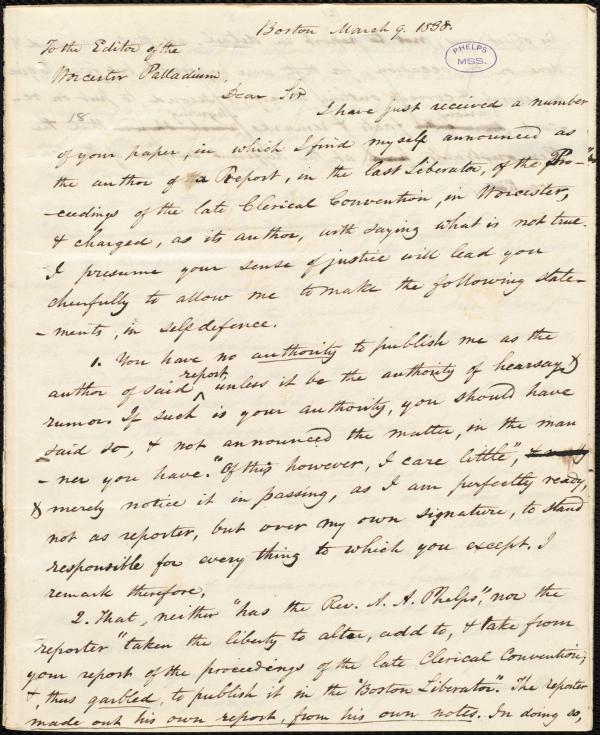 Boston March 9. 1838.
To the Editor of the
Worcester Palladium,
PHELPS
MSS.
Dear Sir
18
I have just received a number
of your paper, in which I find myself announced as
the author of a Report, in the last Liberator, of the "Pro-
-ceedings of the late Clerical Convention, in Worcester,
& charged, as its author, with saying what is not true.
I presume your sense of justice will lead you
cheerfully to allow me to make the following state-
-ments, in self defence.
1. You have no authority to publish me as the
author of said report unless it be the authority of hearsay &
rumor. If such is your authority, you should have
said so, & not announced the matter, in the man
-ner you have. "Of this however, I care little",
& merely notice it in passing, as I am perfectly ready,
not as reporter, but over my own signature, to stand
responsible for every thing to which you except. I
remark therefore,
2. That, neither "has the Rev. A. A. Phelps", nor the
reporter "taken the liberty to alter, add to, & take from
your report of the proceedings of the late Clerical Convention;
&, thus garbled, to publish it in the Boston Liberator". The reporter
made out his own report, from his own notes. In doing so,